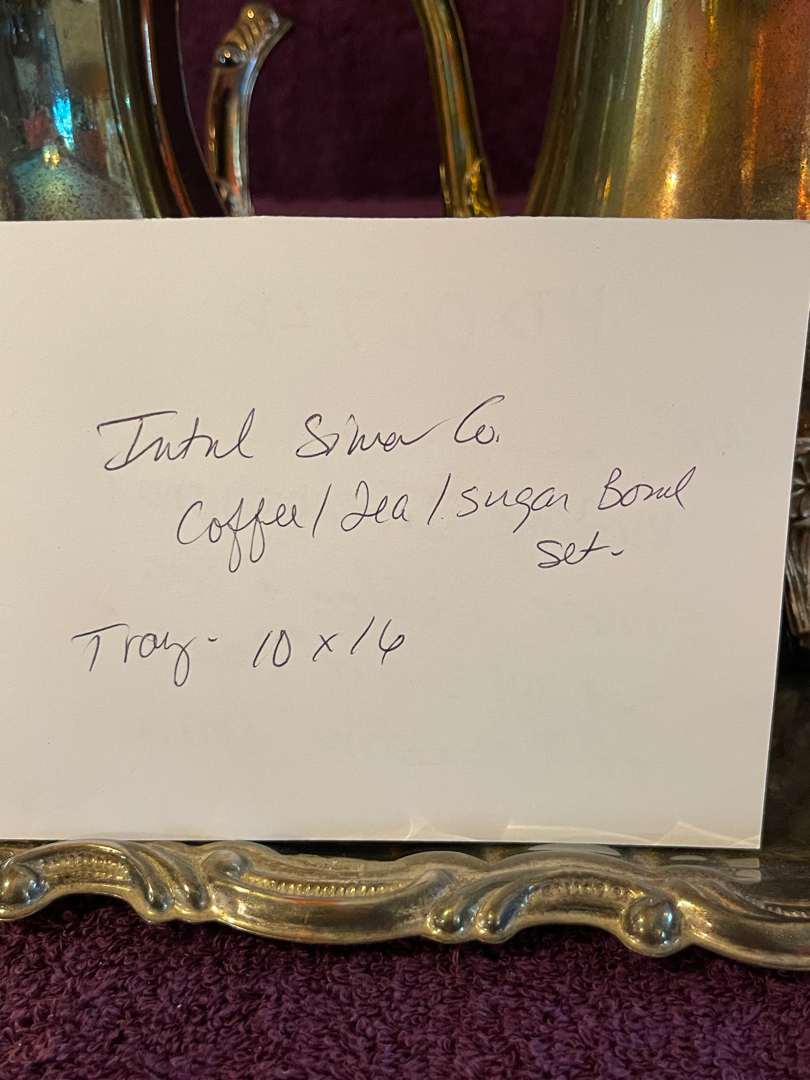 Intnl Silver Co.
Coffee/Tea/Sugar Bowl
set-
Tray- 10 x 16